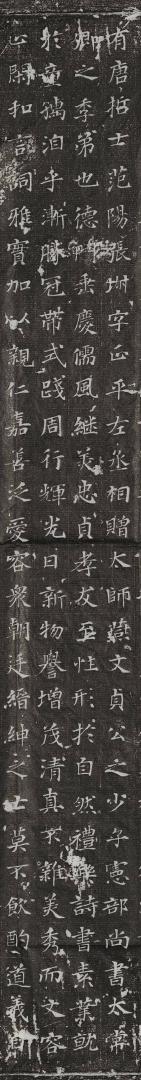 有唐哲士范陽張埱字正平左丞相贈太師諡文貞公之少子憲部尚書太常
卿之季弟也德門垂慶儒風継美忠貞孝友至性形於自然禮樂詩書素業就
於童孺洎乎漸勝冠帶式踐周行輝光日新物譽增茂清真不雜美秀而文容
止閑和言詞雅實加以親仁嘉善泛愛容衆朝廷縉紳之士莫不飲酌道義